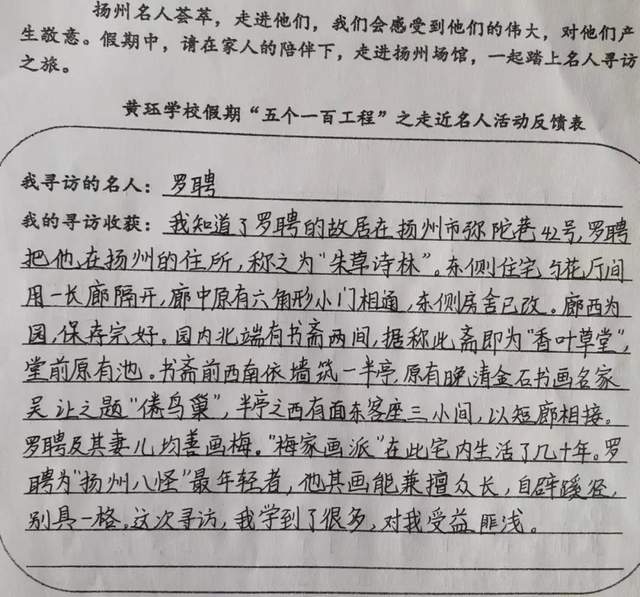 扬州名人荟萃，走进他们，我们会感受到他们的伟大，对他们产
生敬意。假期中，请在家人的陪伴下，走进扬州场馆，一起踏上名人寻访
之旅。
黄珏学校假期“五个一百工程”之走近名人活动反馈表
我寻访的名人：罗聘
我的寻访收获：我知道了罗聘的故居在扬州市弥陀巷42号，罗聘
把他在扬州的住所，称之为“朱草诗林”。东侧住宅与花厅间
用一长廊隔开，廊中原有六角形小门相通，东侧房舍已改。廊西为
园，保存完好。园内北端有书斋两间，据称此斋即为“香叶草堂”，
堂前原有池。书斋前西南依墙筑一半亭，原有晚清金石书画名家
吴让之题“倦鸟巢”，半亭之西有面东客座三小间，以短廊相接。
罗聘及其妻儿均善画梅。“梅家画派”在此宅内生活了几十年。罗
聘为“扬州八怪”最年轻者，他其画能兼擅众长，自辟蹊径，
别具一格。这次寻访，我学到了很多，对我受益匪浅。